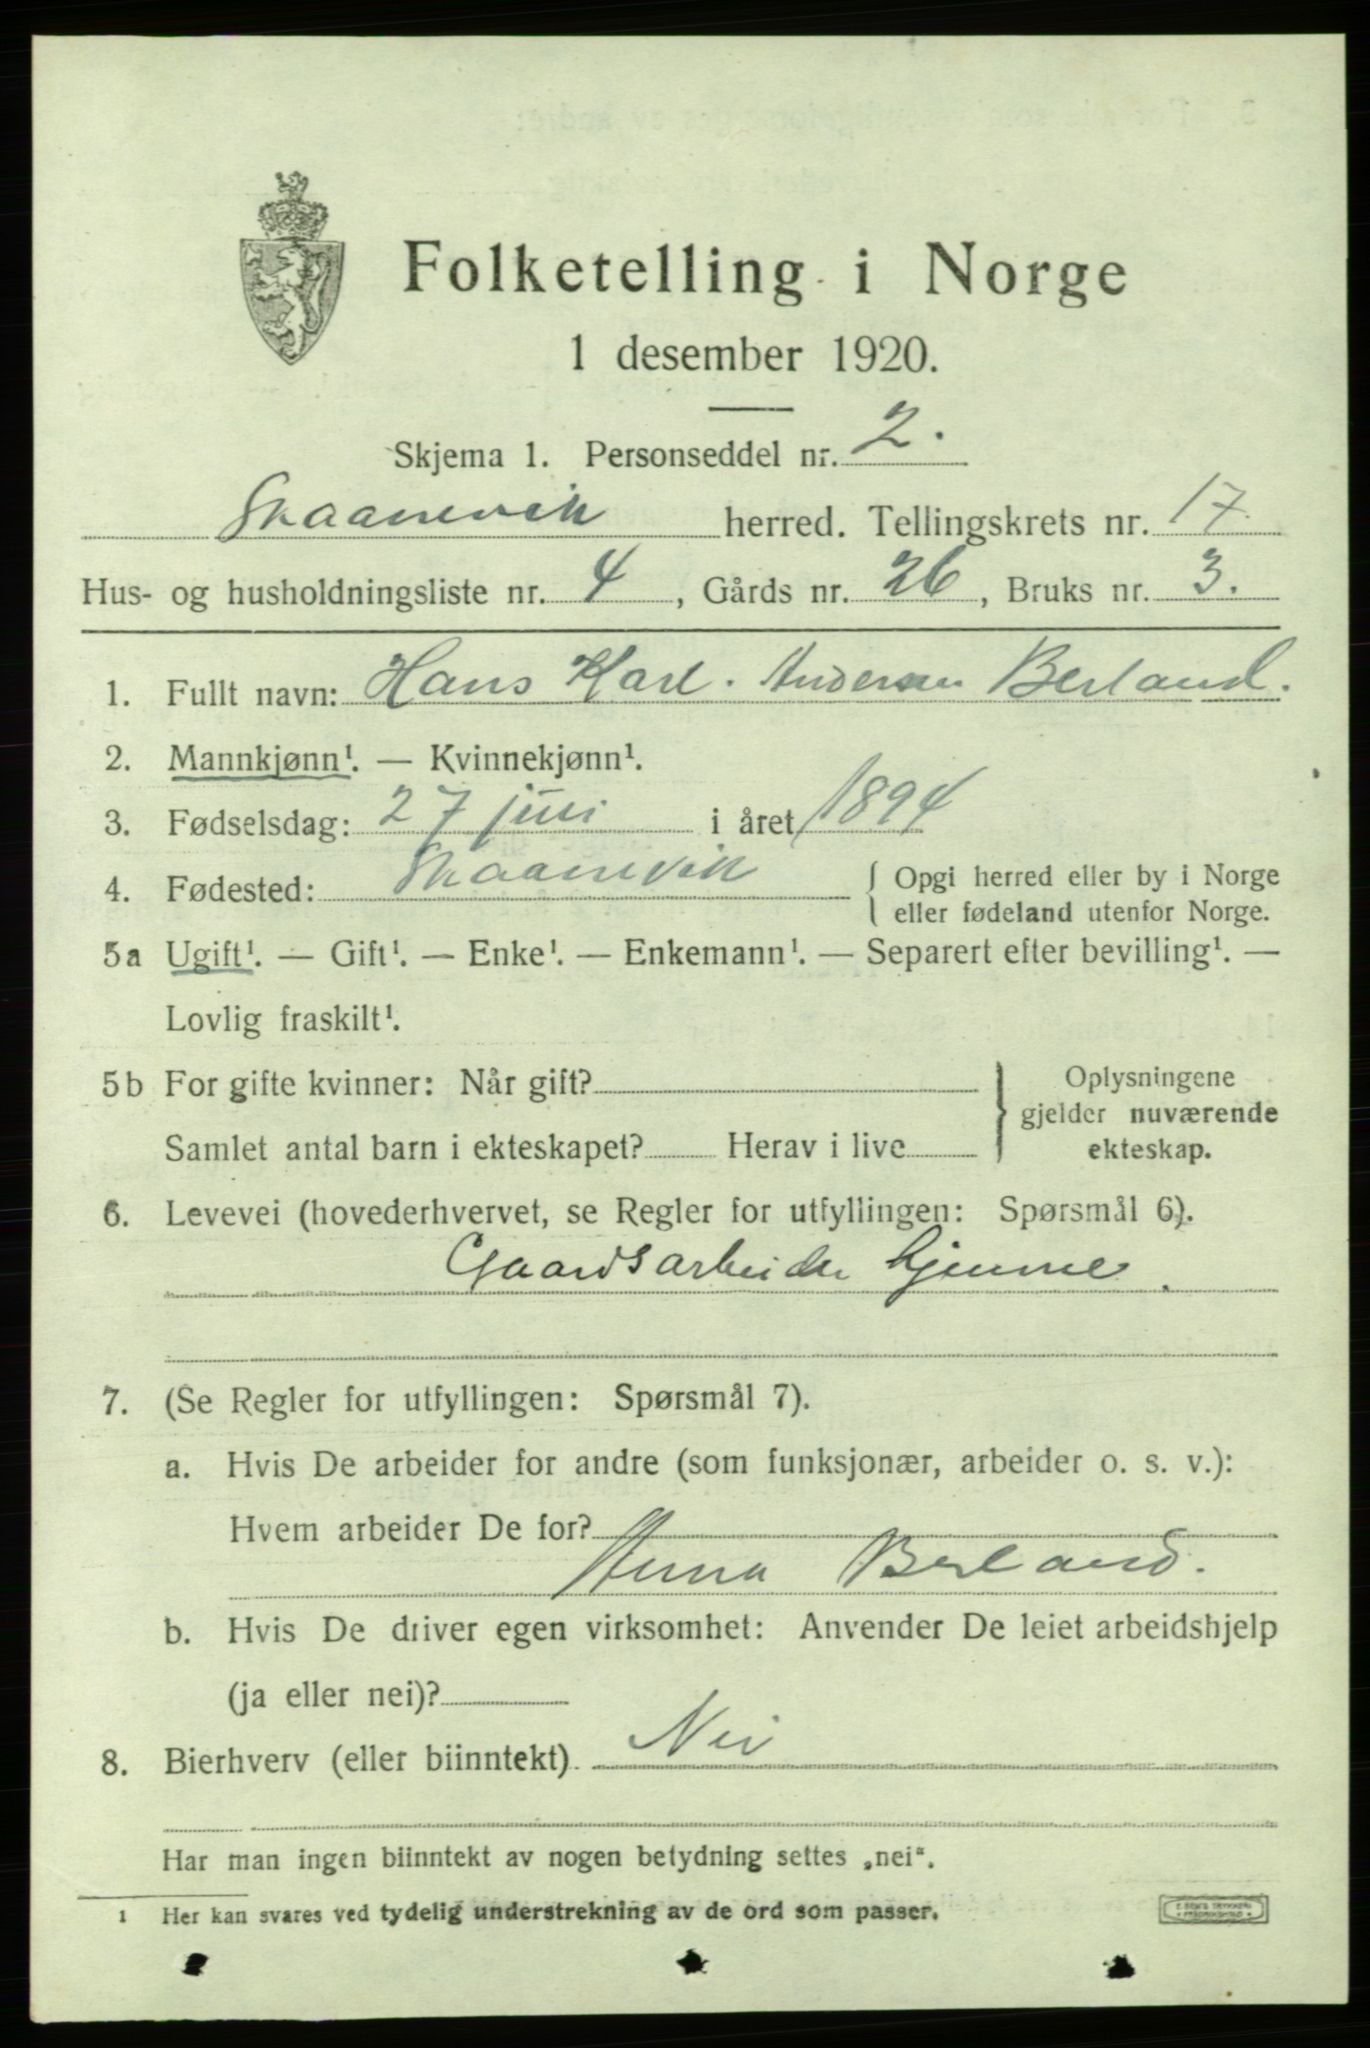 Folketelling i Norge
1 desember 1920.
Skjema 1. Personseddel nr. 2.
Skaanevik herred. Tellingskrets nr. 17
Hus- og husholdningsliste nr. 4, Gårds nr. 26, Bruks nr. 3.
1. Fullt navn: Hans Karl. Anderson Berland.
2. Mannkjønn¹. — Kvinnekjønn¹.
3. Fødselsdag: 27 juni i året 1894
4. Fødested: Skaanevik { Opgi herred eller by i Norge
eller fødeland utenfor Norge.
5a Ugift¹. — Gift¹. — Enke¹. — Enkemann¹. — Separert efter bevilling¹. —
Lovlig fraskilt¹.
5b For gifte kvinner: Når gift? } Oplysningene
gjelder nuværende
Samlet antal barn i ekteskapet? Herav i live
ekteskap.
6. Levevei (hovederhvervet, se Regler for utfyllingen: Spørsmål 6).
Gaardsarbeider hjemme.
7. (Se Regler for utfyllingen: Spørsmål 7).
a. Hvis De arbeider for andre (som funksjonær, arbeider o. s. v.):
Hvem arbeider De for?
Anna Berland.
b. Hvis De driver egen virksomhet: Anvender De leiet arbeidshjelp
(ja eller nei)?
8. Bierhverv (eller biinntekt). Nei
Har man ingen biinntekt av nogen betydning settes „nei“.
1 Her kan svares ved tydelig understrekning av de ord som passer.